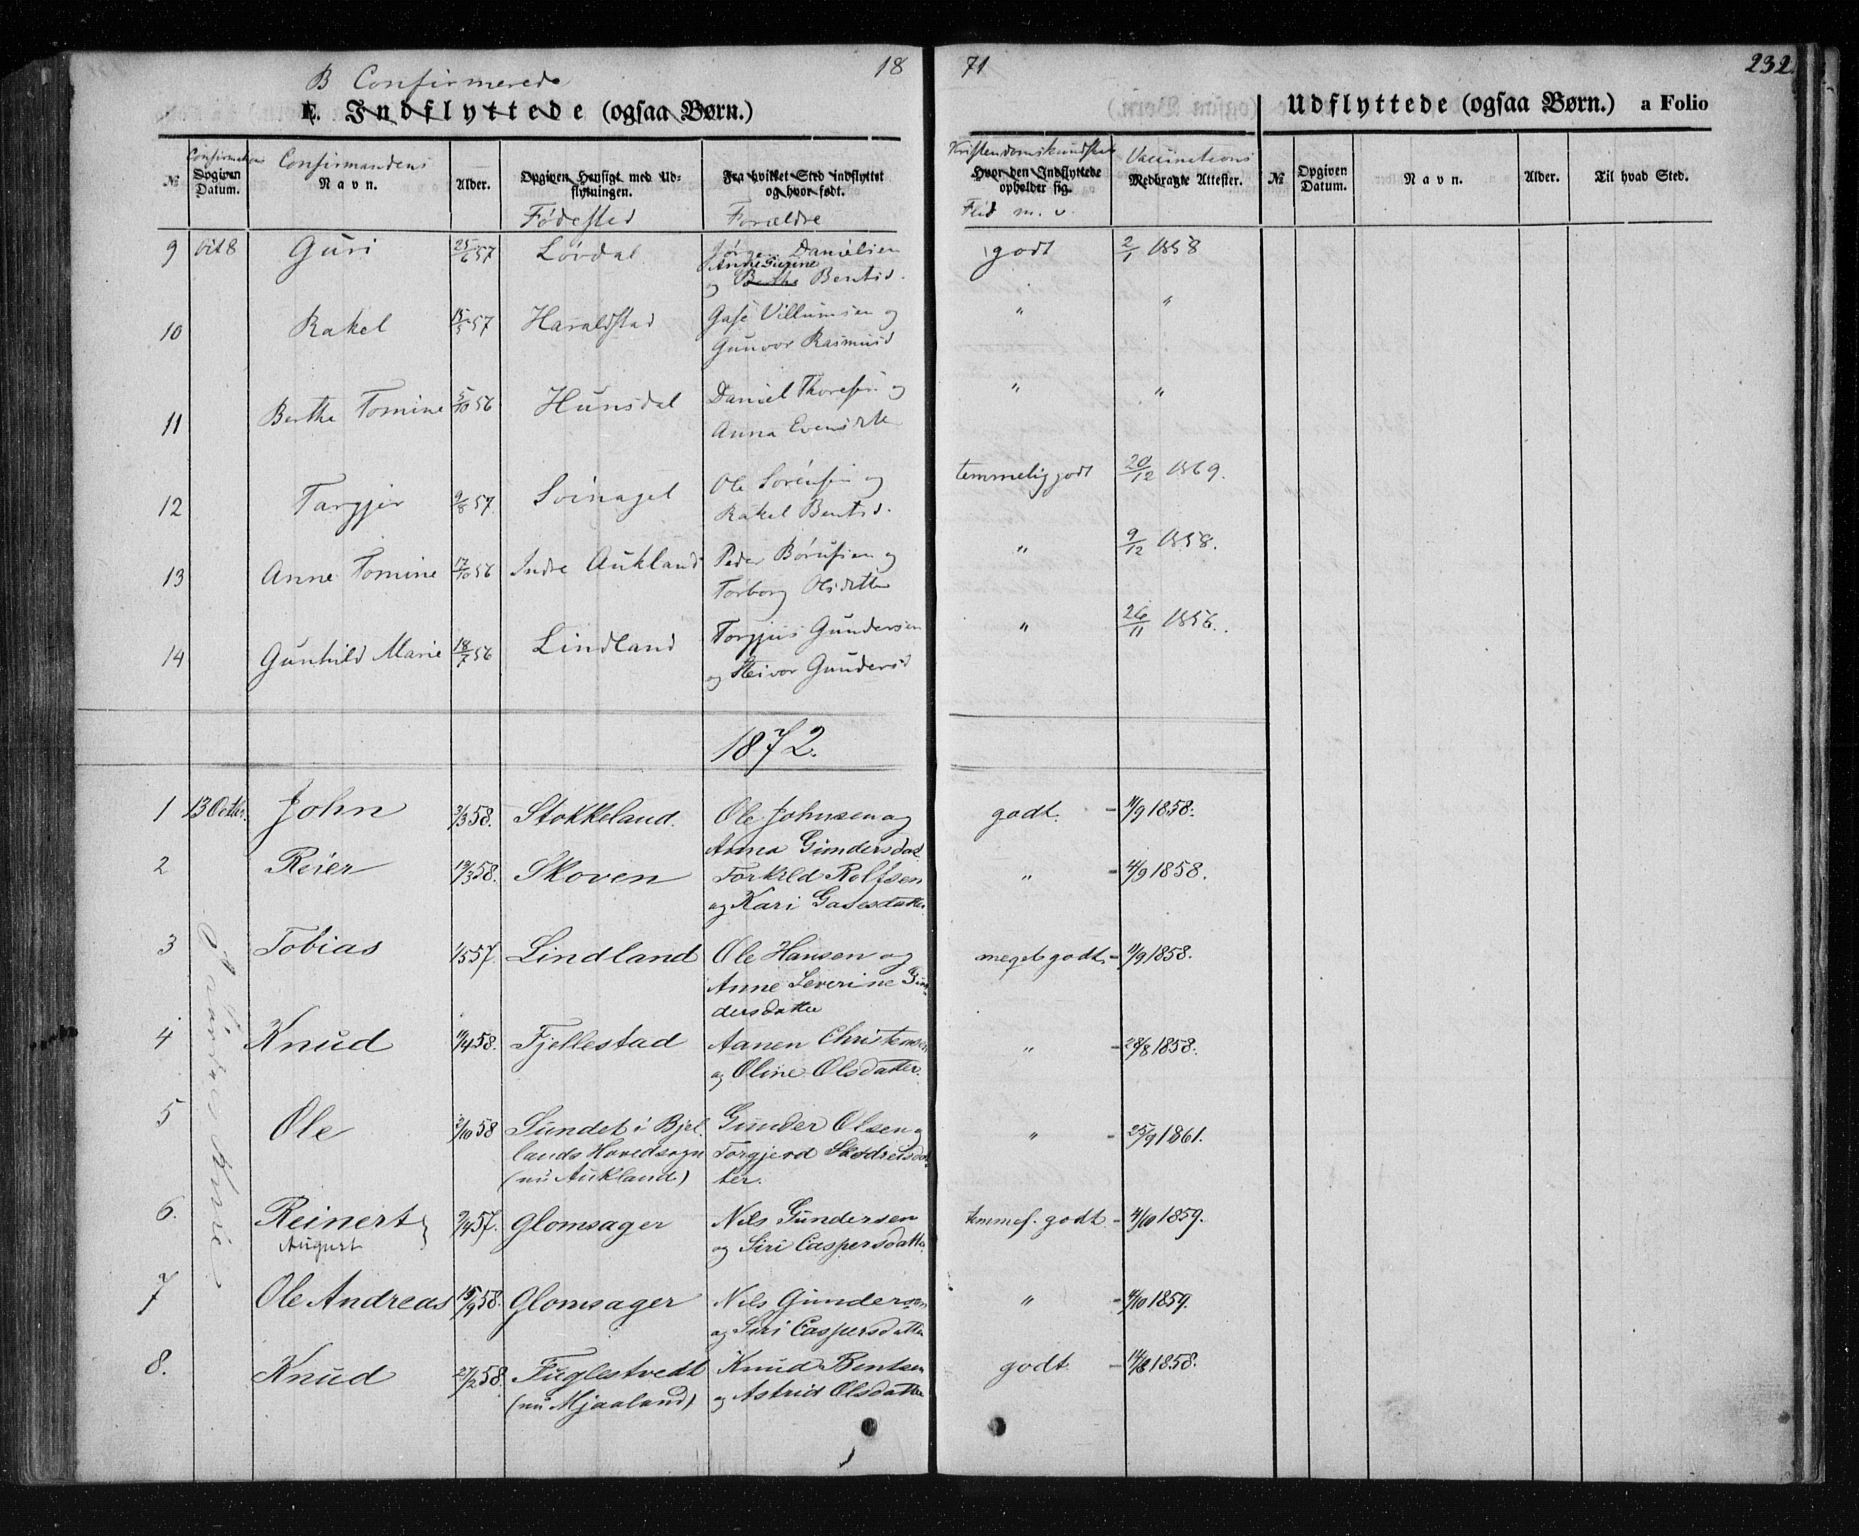 18 71 232.
B Confirmerede
E. Indflyttede (ogsaa Børn.)
Udflyttede (ogsaa Børn.) a Folio
№ Confirmations Opgiven Datum. Confirmandens Navn. Alder. Opgiven Hensigt med Udflytningen. Fødested Fra hvilket Sted indflyttet og hvor født. Forældre Kristendomskundskab Hvor den Indflyttede opholder sig. Flid m. v. Vaccinations Medbragte Attester. № Opgiven Datum. Navn. Alder. Til hvad Sted.
9 Guri 25/6 57 Løvdal Jørgen Danielsen godt 2/1 1858
Anne Gurine
og Berthe Bentsd.
10 Rakel 15/5 57 Haraldstad Gase Villumsen og " "
Gunvor Rasmusd
11 Berthe Tomine 5/10 56 Hunsdal Daniel Thoresen og " "
Anna Evensdtr
12 Targjer 9/8 57 Soinagel Ole Sørensen og temmelig godt 20/12 1869.
Rakel Bentsd.
13 Anne Tomine 17/10 56 Indre Aukland Peder Børufsen og " 9/12 1858.
Torborg Olsdatter
14 Gunhild Marie 18/7 56 Lindland Torgjus Gundersen " 26/11 1856.
og Reivor Gundersd
1872.
1 13 Octbr. John 3/3 58. Stokkeland. Ole Johnsen og godt. - 11/9 1858.
Anna Gundersdat
2 Reier 19/3 58. Skoven Torkild Rolfsen " - 4/9 1858.
og Kari Gasesdatter
3 Tobias 1/5 57. Lindland Ole Hansen og meget godt. - 11/9 1858.
Anne Severine Gun-
dersdatter
4 Knud 11/4 58. Fjellestad Aanen Christensen " - 28/8 1858.
og Oline Olsdatter.
5 Ole 2/10 58 Sundet i Bjel- Gunder Olsen og " - 25/9 1861.
lands Hovedsogn Torgjerd Skedrelsdat-
(nu Aukland) ter.
6. Reinert 9/4 57. Glomsager Nils Gundersen temmel. godt - 4/10 1859.
August og Siri Caspersdatter
7 Ole Andreas 15/9 58. Glomsager Nils Gundersen " - 4/10 1859.
og Siri Caspersdatter
8. Knud 27/2 58. Fuglestvedt Knud Bentsen godt - 14/8 1858.
(nu Mjaaland) og Astrid Olsdatter